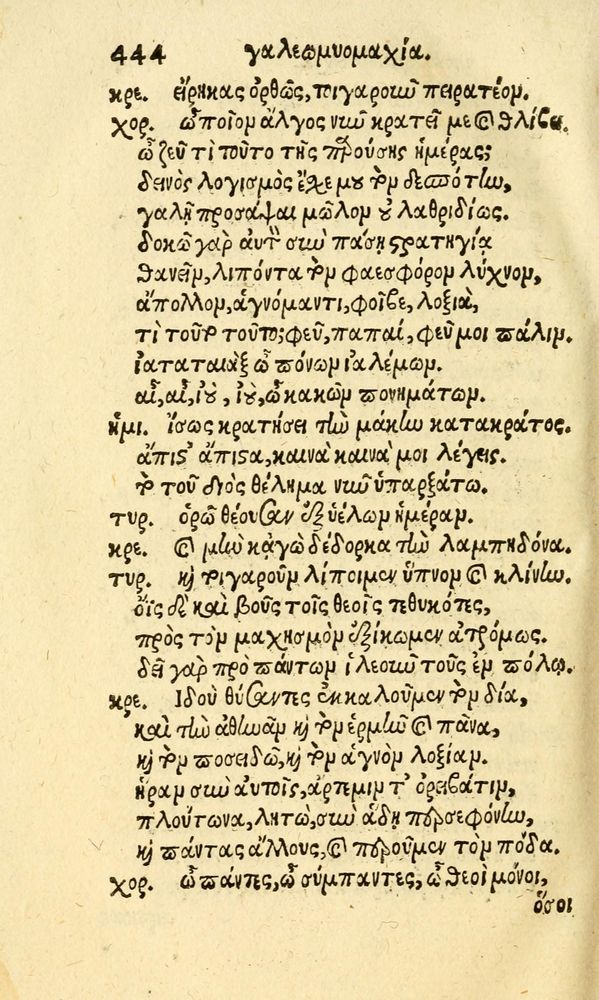 444 γαλεωμυομαχία.
κρε. εἴρηκας ὀρθῶς, τοιγαροῦν πειρατέον.
χορ. ὢ ποῖον ἄλγος νῦν κρατεῖ με καὶ θλίβει.
ὦ ζεῦ τί τοῦτο τῆς παρούσης ἡμέρας;
δεινὸς λογισμὸς ἔχε μου τὸν δεσπότην,
γαλῇ προσάψαι μῶλον οὐ λαθριδίως.
δοκῶ γὰρ αὐτὸν σὺν πάσῃ στρατηγίᾳ
θανεῖν, λιπόντα τὸν φαεσφόρον λύχνον,
ἄπολλον, ἁγνόμαντι, φοῖβε, λοξιὰ,
τί τοῦτο τοῦτο; φεῦ, παπαί, φεῦ μοι πάλιν.
ἰαταταιὰξ ὢ πόνων ἰαλέμων.
αἶ, αἶ, ἰοὺ, ἰοὺ, ὢ κακῶν πονημάτων.
ἡμι. ἴσως κρατήσει τὴν μάχην κατακράτος.
ἄπιστ' ἄπιστα, καινὰ καινά μοι λέγεις.
τὸ τοῦ διὸς θέλημα νῦν ὑπαρξάτω.
τυρ. ὁρῶ θέουσαν ἐξ ὑέλων ἡμέραν.
κρε. καὶ μὴν κἀγὼ δέδορκα τὴν λαμπηδόνα.
τυρ. καὶ τοιγαροῦν λίποιμεν ὕπνον καὶ κλίνην.
ὄϊς δὲ καὶ βοῦς τοῖς θεοῖς τεθυκότες,
πρὸς τὸν μαχησμὸν ἐξίκωμεν ἀτρόμως.
δεῖ γὰρ πρὸ πάντων ἱλεοῦν τοὺς ἐν πόλῳ.
κρε. Ἰδοὺ θύσαντες ἐκκαλοῦμεν τὸν δία,
καὶ τὴν ἀθηνᾶν καὶ τὸν ἑρμῆν καὶ πᾶνα,
καὶ τὸν ποσειδῶ, καὶ τὸν ἁγνὸν λοξίαν.
ἥραν σὺν αὐτοῖς, ἄρτεμίν τ' ὀρειβάτιν,
πλούτωνα, λητὼ, σὺν ἅδῃ περσεφόνην,
καὶ πάντας ἄλλους, καὶ περοῦμεν τὸν πόδα.
χορ. ὦ πάντες, ὦ σύμπαντες, ὦ θεοὶ μόνοι,
ὅσοι